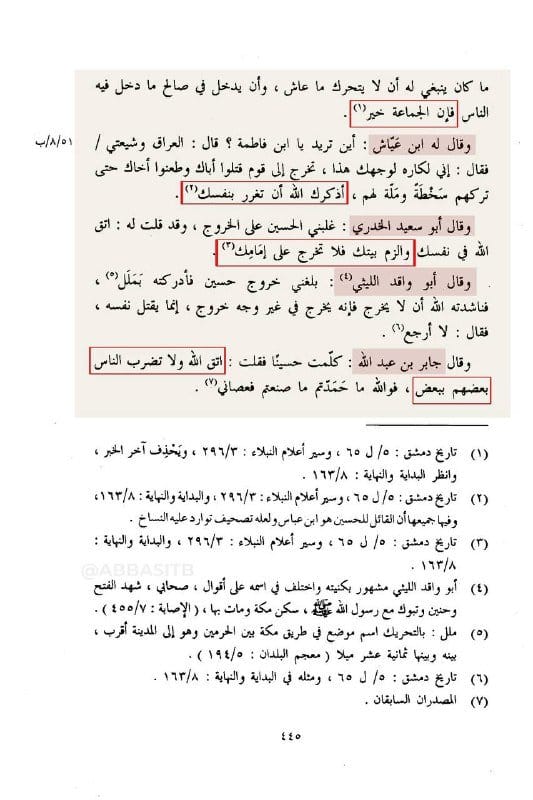 ما كان ينبغي له أن لا يتحرك ما عاش ، وأن يدخل في صالح ما دخل فيه
الناس فإن الجماعة خير(١) .
وقال له ابن عَيّاش : أين تريد يا ابن فاطمة ؟ قال : العراق وشيعتي /
٨/٥١/ب
فقال : إني لكاره لوجهك هذا ، تخرج إلى قوم قتلوا أباك وطعنوا أخاك حتى
تركهم سَخْطَةً ومَلّة لهم ، أذكرك الله أن تغرر بنفسك(٢) .
وقال أبو سعيد الخدري : غلبني الحسين على الخروج ، وقد قلت له : اتق
الله في نفسك والزم بيتك فلا تخرج على إمَامِك(٣) .
وقال أبو واقد الليثي(٤) : بلغني خروج حسين فأدركته بَمَلَل(٥) ،
فناشدته الله أن لا يخرج فإنه يخرج في غير وجه خروج ، إنما يقتل نفسه ،
فقال : لا أرجع(٦) .
وقال جابر بن عبد الله : كلّمت حسينًا فقلت : اتق الله ولا تضرب الناس
بعضهم ببعض ، فوالله ما حَمَدّتم ما صنعتم فعصاني(٧) .
(١) تاريخ دمشق : ٥/ ل ٦٥ ، وسير أعلام النبلاء : ٢٩٦/٣ ، ويَحْذِف آخر الخبر ،
وانظر البداية والنهاية : ١٦٣/٨ .
(٢) تاريخ دمشق : ٥/ ل ٦٥ ، وسير أعلام النبلاء : ٢٩٦/٣ ، والبداية والنهاية : ١٦٣/٨،
وفيها جميعها أن القائل للحسين هو ابن عباس ولعله تصحيف توارد عليه النساخ .
(٣) تاريخ دمشق : ٥/ ل ٦٥ ، وسير أعلام النبلاء : ٢٩٦/٣ ، والبداية والنهاية :
١٦٣/٨ .
@ABBASITB
(٤) أبو واقد الليثي مشهور بكنيته واختلف في اسمه على أقوال ، صحابي ، شهد الفتح
وحنين وتبوك مع رسول الله ﷺ ، سكن مكة ومات بها ، ( الإصابة : ٤٥٥/٧ ) .
(٥) ملل : بالتحريك اسم موضع في طريق مكة بين الحرمين وهو إلى المدينة أقرب ،
بينه وبينها ثمانية عشر ميلا ( معجم البلدان : ١٩٤/٥ ) .
(٦) تاريخ دمشق : ٥/ ل ٦٥ ، ومثله في البداية والنهاية : ١٦٣/٨ .
(٧) المصدران السابقان .
٤٤٥